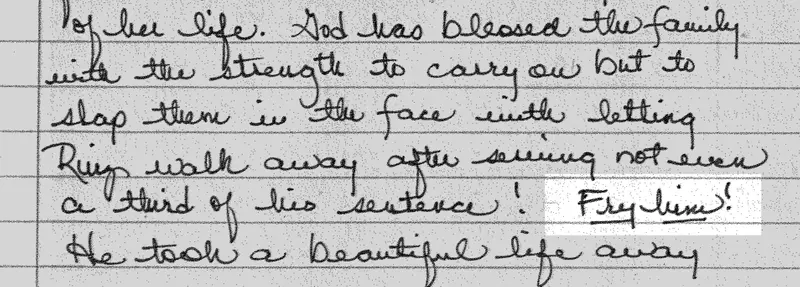 of her life. God has blessed the family
with the strength to carry on but to
slap them in the face with letting
Ring walk away after serving not even
a third of his sentence! Fry him!
He took a beautiful life away